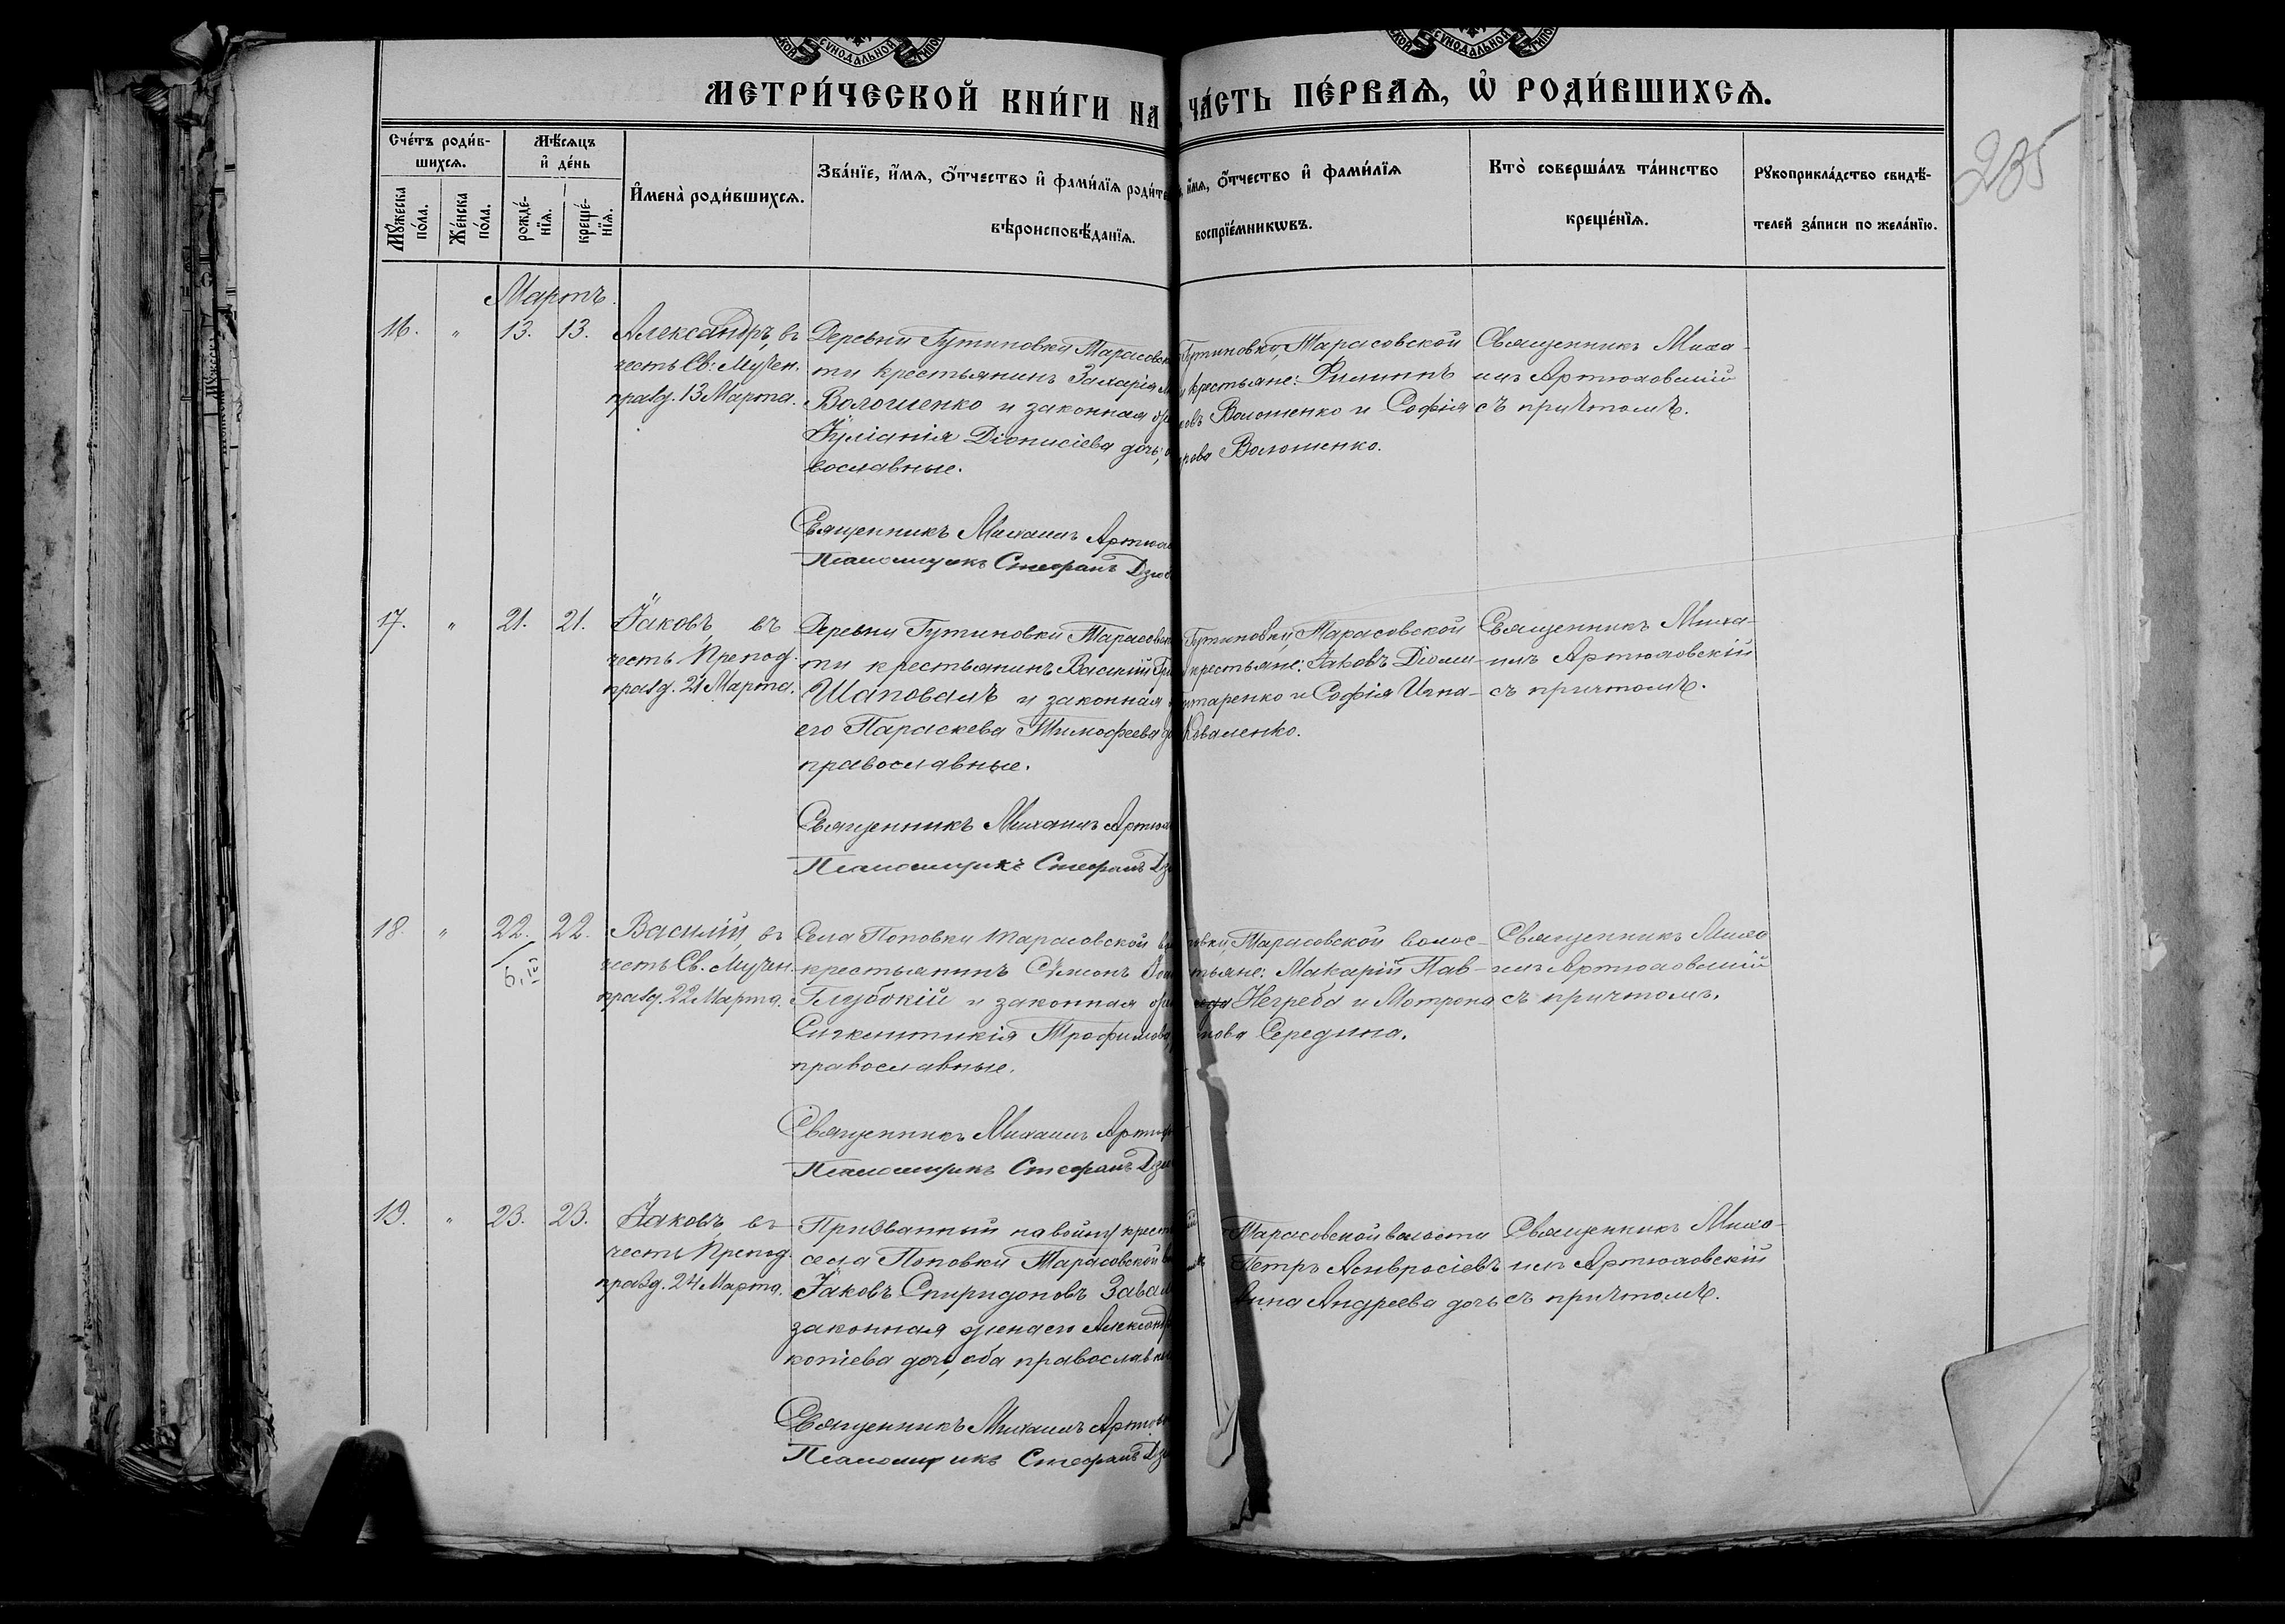 СѴНОДАЛЬНОЙ
СѴНОДАЛЬНОЙ
МЕТРИ́ЧЕСКОЙ КНИ́ГИ НА
ЧА́СТЬ ПЕ́РВАѦ, Ѡ҆ РОДИ́ВШИХСѦ.
235
Сче́тъ роди́в-
шихсѧ.
Мѣ́сѧцъ
и҆ де́нь
Мꙋ́жеска
по́ла.
Же́нска
по́ла.
рожде́-
нїѧ.
креще́-
нїѧ.
И҆мена̀ роди́вшихсѧ.
Зва́нїе, и҆́мѧ, ѻ҆́тчество и҆ фами́лїѧ роди́те
вѣроисповѣ́данїѧ.
и҆́мѧ, ѻ҆́тчество и҆ фами́лїѧ
воспрїе́мникѡвъ.
Кто̀ соверша́лъ та́инство
креще́нїѧ.
Рꙋкоприкла́дство свидѣ́-
телей за́писи по жела́нїю.
Мартъ.
16. " 13. 13.
Александръ, въ
честь Св. Мучен.
празд. 13 Марта.
Деревни Гутниовки Тарасовск
ти крестьянинъ Захарія
Волошенко и законная
Іуліанія Діонисіева дочь,
вославные.
Священникъ Михаилъ Артюх
Псаломщикъ Стефанъ Дзю
Тарасовской
крестьяне: Филиппъ
Волошенко и Софія
Волошенко.
Священникъ Миха-
илъ Артюховскій
съ причтомъ.
17. " 21. 21.
Іаковъ, въ
честь Препод.
празд. 21 Марта.
Деревни Гутниовки Тарасовск
ти крестьянинъ Василій
Шаповалъ и законная
его Параскева Тимофеева
православные.
Священникъ Михаилъ Артюх
Псаломщикъ Стефанъ Дз
Тарасовской
крестьяне: Іаковъ
и Софія Игна-
Коваленко.
Священникъ Миха-
илъ Артюховскій
съ причтомъ.
18. " 22. 22.
Василій, въ
честь Св. Мучен.
празд. 22 Марта.
Села Поповки Тарасовской
крестьянинъ Сѵмеонъ
Глубокій и законная
Синклитикія Трофимова,
православные.
Священникъ Михаилъ Артю
Псаломщикъ Стефанъ Дзю
Тарасовской волос-
Макарій Пав-
Негреба и Мотрона
Середина.
Священникъ Миха
илъ Артюховскій
съ причтомъ.
19. " 23. 23.
Іаковъ, въ
честь Препод.
празд. 24 Марта.
Призванный на войну крест
села Поповки Тарасовской
Іаковъ Спиридоновъ
законная жена его Александр
дочь, оба православн
Священникъ Михаилъ Артюхо
Псаломщикъ Стефанъ Дз
Тарасовской волости
Петръ Амвросіевъ
Анна Андреева дочь
Священникъ Миха-
илъ Артюховскій
съ причтомъ.